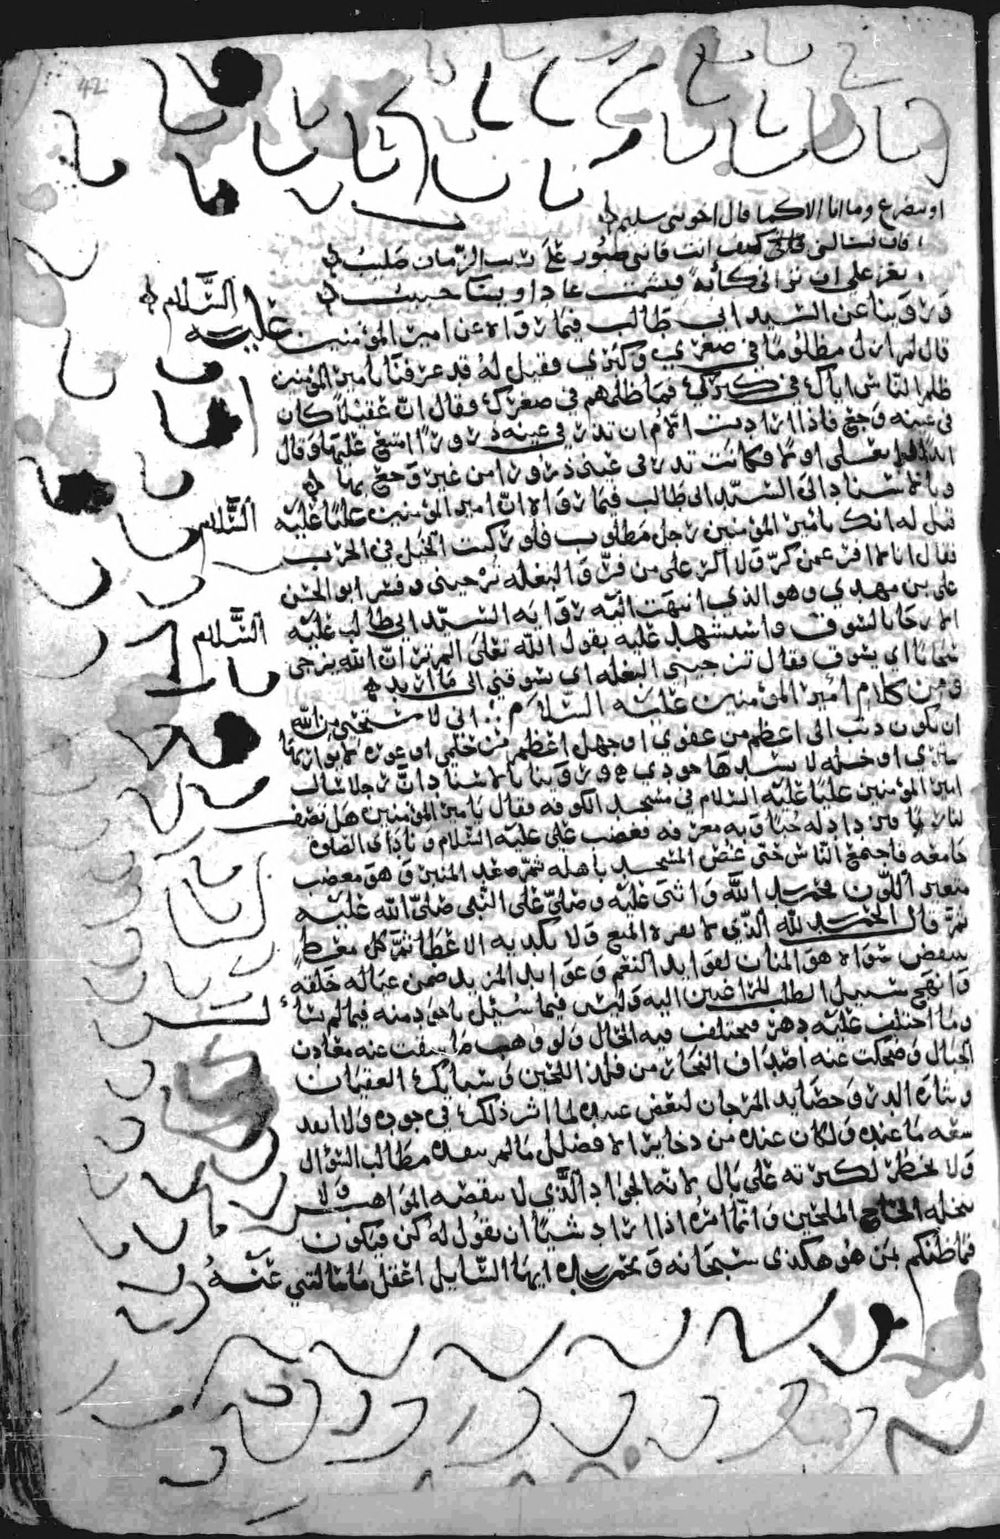 42
او متضرع وما انا الا كما قال اخو بني سليم
فان تسالني كيف انت فانني صبور على ريب الزمان صليب
يعز علي ان ترى بي كآبة فيشمت عاد او يسا حبيب
وروينا عن السيد ابي طالب فيما رواه عن امير المؤمنين عليه السلام
قال لم ازل مظلوما في صغري وكبري فقيل له قد عرفنا يا امير المؤمنين
ظلم الناس اياك في كبرك فما ظلمهم في صغرك فقال ان عقيلا كان
في عينه وجع فاذا ارادت الام ان تذر في عينه ذرورا امتنع عليها وقال
ابدا بعلي اولا فكانت تذر في عيني ذرورا من غير وجع بها
وبالاسناد الى السيد ابي طالب فيما رواه ان امير المؤمنين عليا عليه السلام
قيل له انك يا امير المؤمنين رجل مطلوب فلو ركبت الخيل في الحرب
فقال انا لا افر عمن كر ولا اكر على من فر والبغلة تزجيني وفسر ابو الحسن
علي بن مهدي وهو الذي انتهت اليه رواية السيد ابي طالب عليه السلام
الازجا بالسوق واستشهد عليه بقول الله تعالى الم تر ان الله يزجي
سحابا اي يسوق فقال تزجيني البغلة اي تسوقني الى ما اريد
ومن كلام امير المؤمنين عليه السلام اني لاستحيي من الله
ان يكون ذنب الي اعظم من عفوي او جهل اعظم من حلمي او عورة لا يواريها
ستري او خلة لا يسدها جودي وروينا بالاسناد ان رجلا سال
امير المؤمنين عليا عليه السلام في مسجد الكوفة فقال يا امير المؤمنين هل تصف
لنا ربنا فنزداد له حبا وبه معرفة فغضب علي عليه السلام ونادى الصلوة
جامعة فاجتمع الناس حتى غص المسجد باهله ثم صعد المنبر وهو مغضب
متغير اللون فحمد الله واثنى عليه وصلى على النبي صلى الله عليه
ثم قال الحمد لله الذي لا يفره المنع ولا يكديه الاعطا ثم كل معط
ينقص سواه هو المنان بفوايد النعم وعوايد المزيد ضمن عيالة خلقه
وانهج سبيل الطلب للراغبين اليه وليس فيما سئل باجود منه فيما لم يسأل
وما اختلف عليه دهر فيختلف فيه الحال ولو وهب ما سقت عنه معادن
الجبال وضحكت عنه اصداف البحار من فلذ اللجين وسبايك العقيان
ونثارة الدر وحصايد المرجان لبعض عبيده لما اثر ذلك في جوده ولا انفد
سعة ما عنده ولكان عنده من ذخاير الافضال ما لم ينفده مطالب السؤال
ولا يخطر لكثرته على بال لانه الجواد الذي لا ينقصه المواهب ولا
يبخله الحاح الملحين وانما امره اذا اراد شيئا ان يقول له كن فيكون
فما ظنكم بمن هو هكذى سبحانه وبحمده ايها السايل اعقل ما سالتني عنه